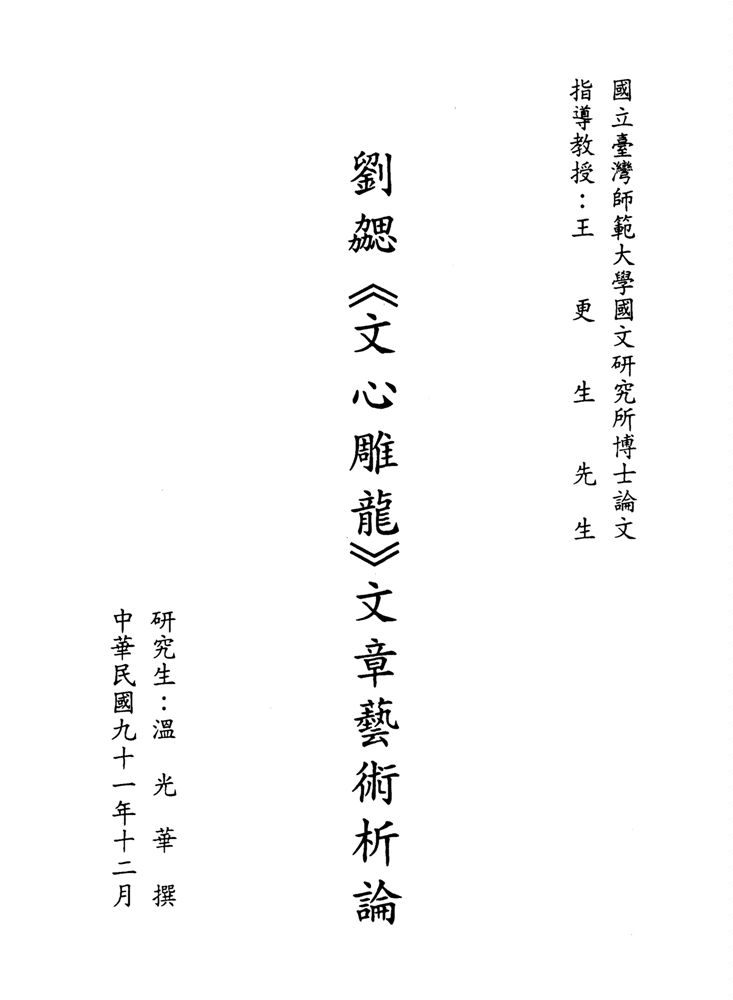 國立臺灣師範大學國文研究所博士論文
指導教授：王更生先生
劉勰《文心雕龍》文章藝術析論
研究生：溫光華撰
中華民國九十一年十二月